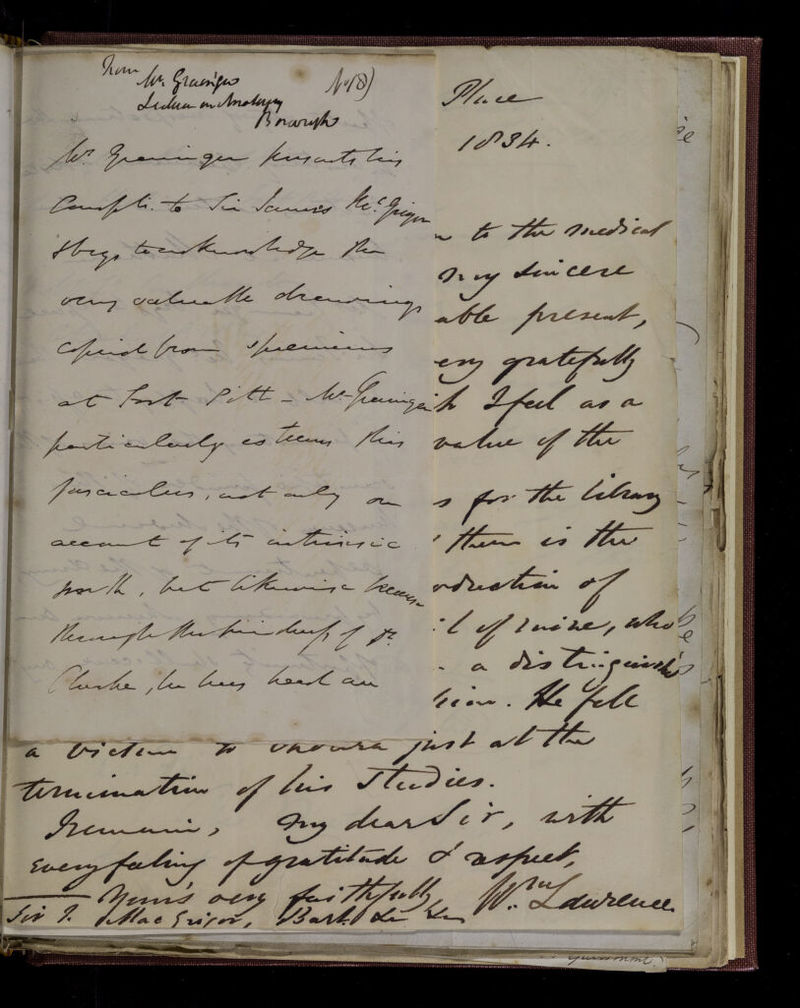 From
Mr. Grainger
Lecturer on Anatomy
Borough
No 18)
Mr. Grainger presents his
Complts. to Sir James McGrigor
& begs to acknowledge the
very valuable drawings
copied from specimens
at Fort Pitt - Mr Grainger
particularly esteems this
fasciculus, not only on
account of its intrinsic
worth, but likewise because
through the kindness of Dr.
Clarke, he has had an
Place
1834.
to the medical
my sincere
able present,
ery gratefully
h I feel as a
value of the
s for the library
them is the
oduction of
il of mine, who
a distinguish'd
him. He fell
a victim to cholera just at the
termination of his Studies.
I remain, my dear Sir, with
every feeling of gratitude & respect,
Your's very faithfully
Wm. Lawrence
Sir J. MacGrigor, Bart.